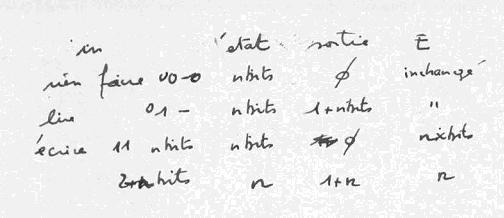 in état sortie E
rien faire 00-0 nbits ϕ inchangé
lire 01 - nbits 1+nbits "
écrire 11 nbits nbits ϕ nxbits
2+nbits n 1+n n